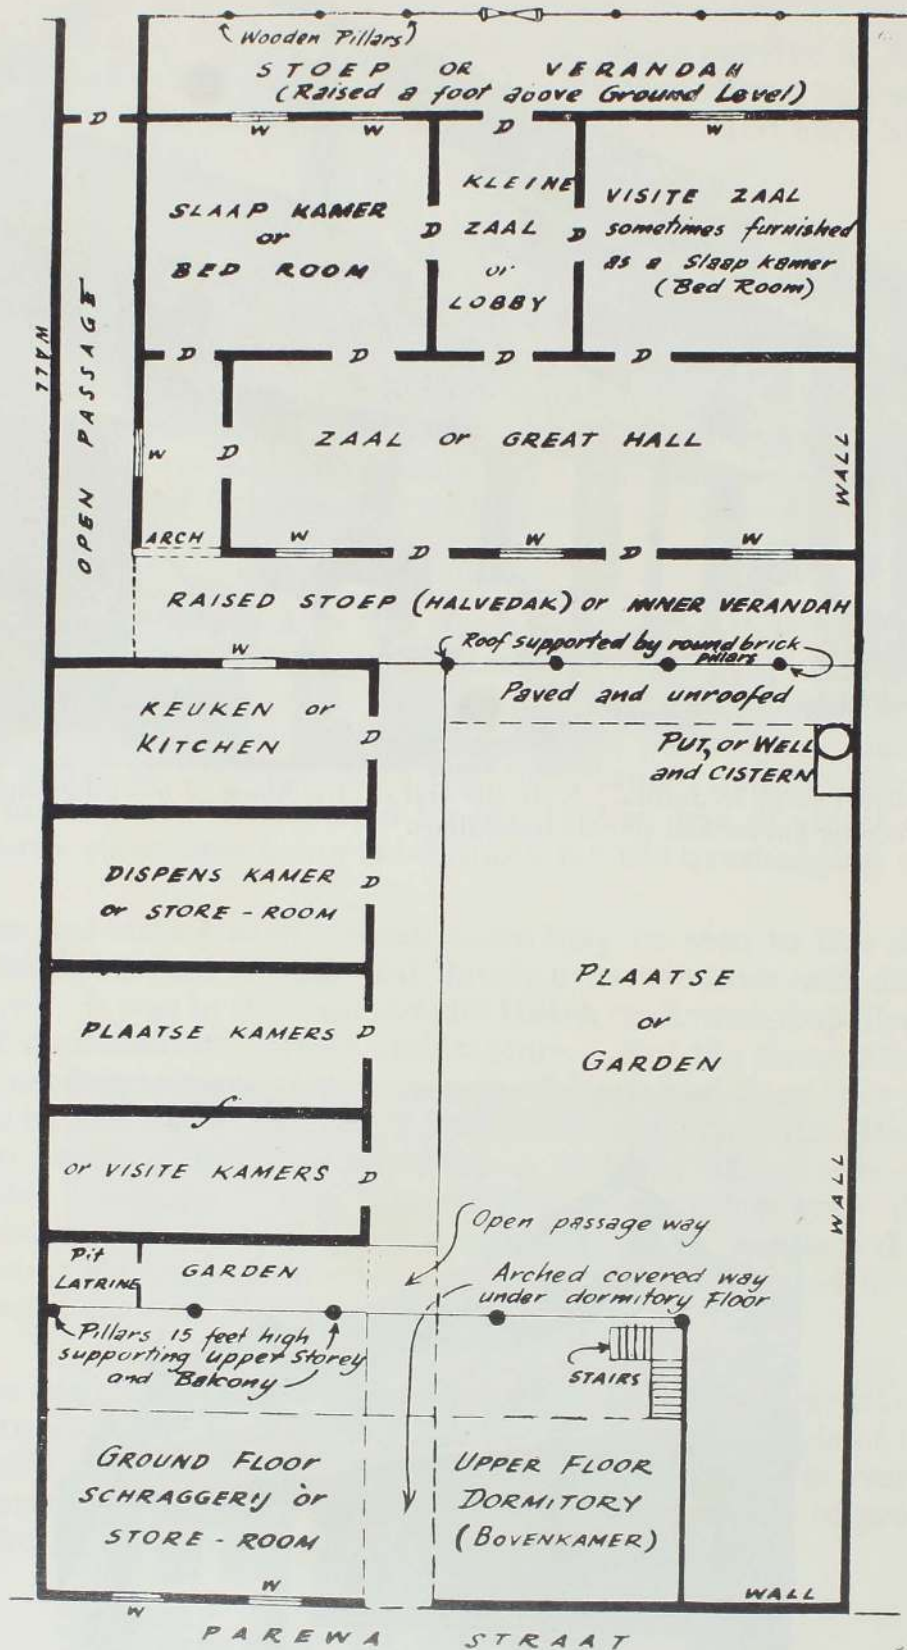 (Wooden Pillars)
STOEP OR VERANDAH
(Raised a foot above Ground Level)
D
W W D W
SLAAP KAMER
or
BED ROOM
D
KLEINE
ZAAL
or
LOBBY
D
VISITE ZAAL
sometimes furnished
as a Slaap kamer
(Bed Room)
WALL
OPEN PASSAGE
D D D D
W
D
ZAAL or GREAT HALL
WALL
ARCH
W D W D W
RAISED STOEP (HALVEDAK) or INNER VERANDAH
W
Roof supported by round brick
pillars
Paved and unroofed
KEUKEN or
KITCHEN
D
PUT, or WELL
and CISTERN
DISPENS KAMER
or STORE-ROOM
D
PLAATSE
or
GARDEN
PLAATSE KAMERS
D
or VISITE KAMERS
D
WALL
Open passage way
Pit
LATRINE
GARDEN
Arched covered way
under dormitory Floor
Pillars 15 feet high
supporting upper Storey
and Balcony
STAIRS
GROUND FLOOR
SCHRAGGERIJ or
STORE-ROOM
UPPER FLOOR
DORMITORY
(BOVENKAMER)
W W
WALL
PAREWA STRAAT